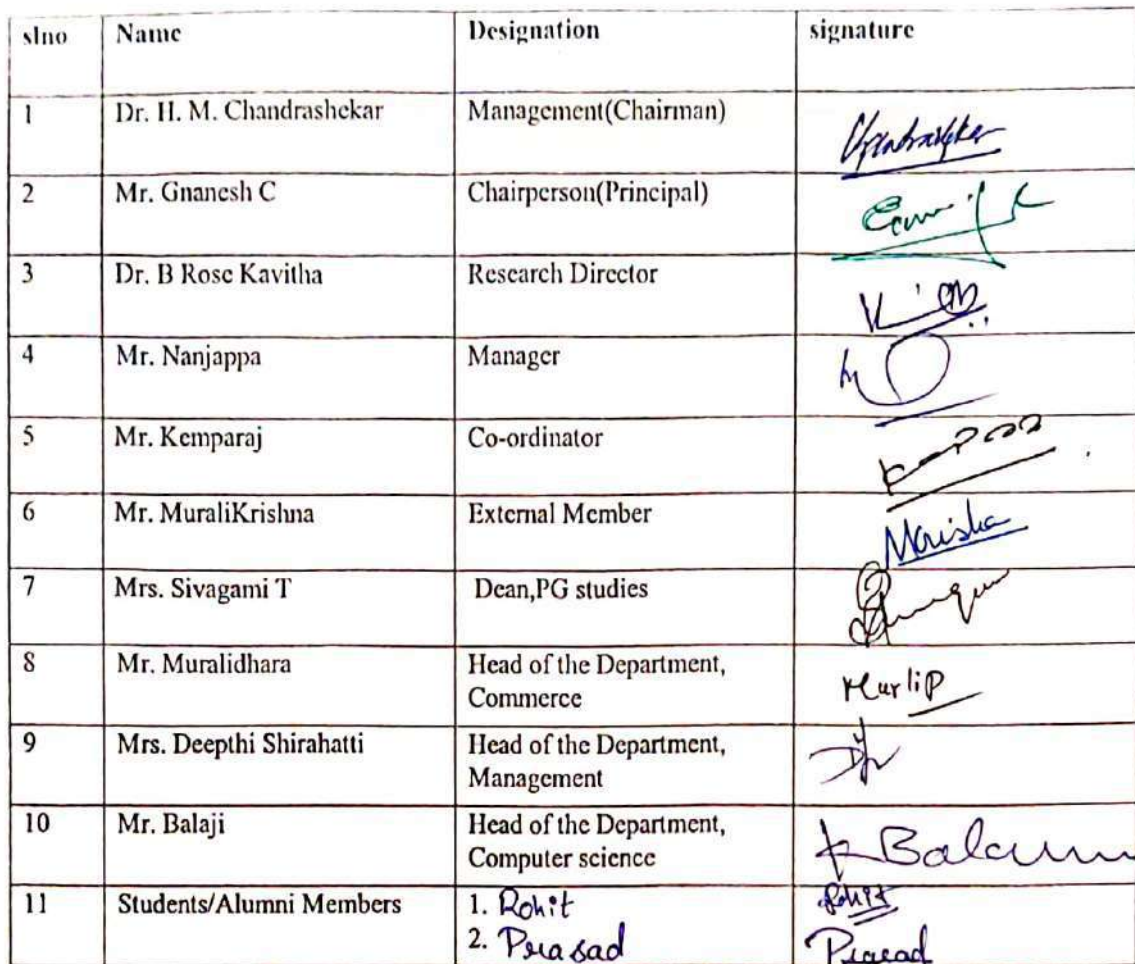 slno Name Designation signature
1 Dr. H. M. Chandrashekar Management(Chairman)
2 Mr. Gnanesh C Chairperson(Principal)
3 Dr. B Rose Kavitha Research Director
4 Mr. Nanjappa Manager
5 Mr. Kemparaj Co-ordinator
6 Mr. MuraliKrishna External Member
7 Mrs. Sivagami T Dean,PG studies
8 Mr. Muralidhara Head of the Department,
Commerce MurliP
9 Mrs. Deepthi Shirahatti Head of the Department,
Management
10 Mr. Balaji Head of the Department,
Computer science
11 Students/Alumni Members 1. Rohit Rohit
2. Prasad Prasad